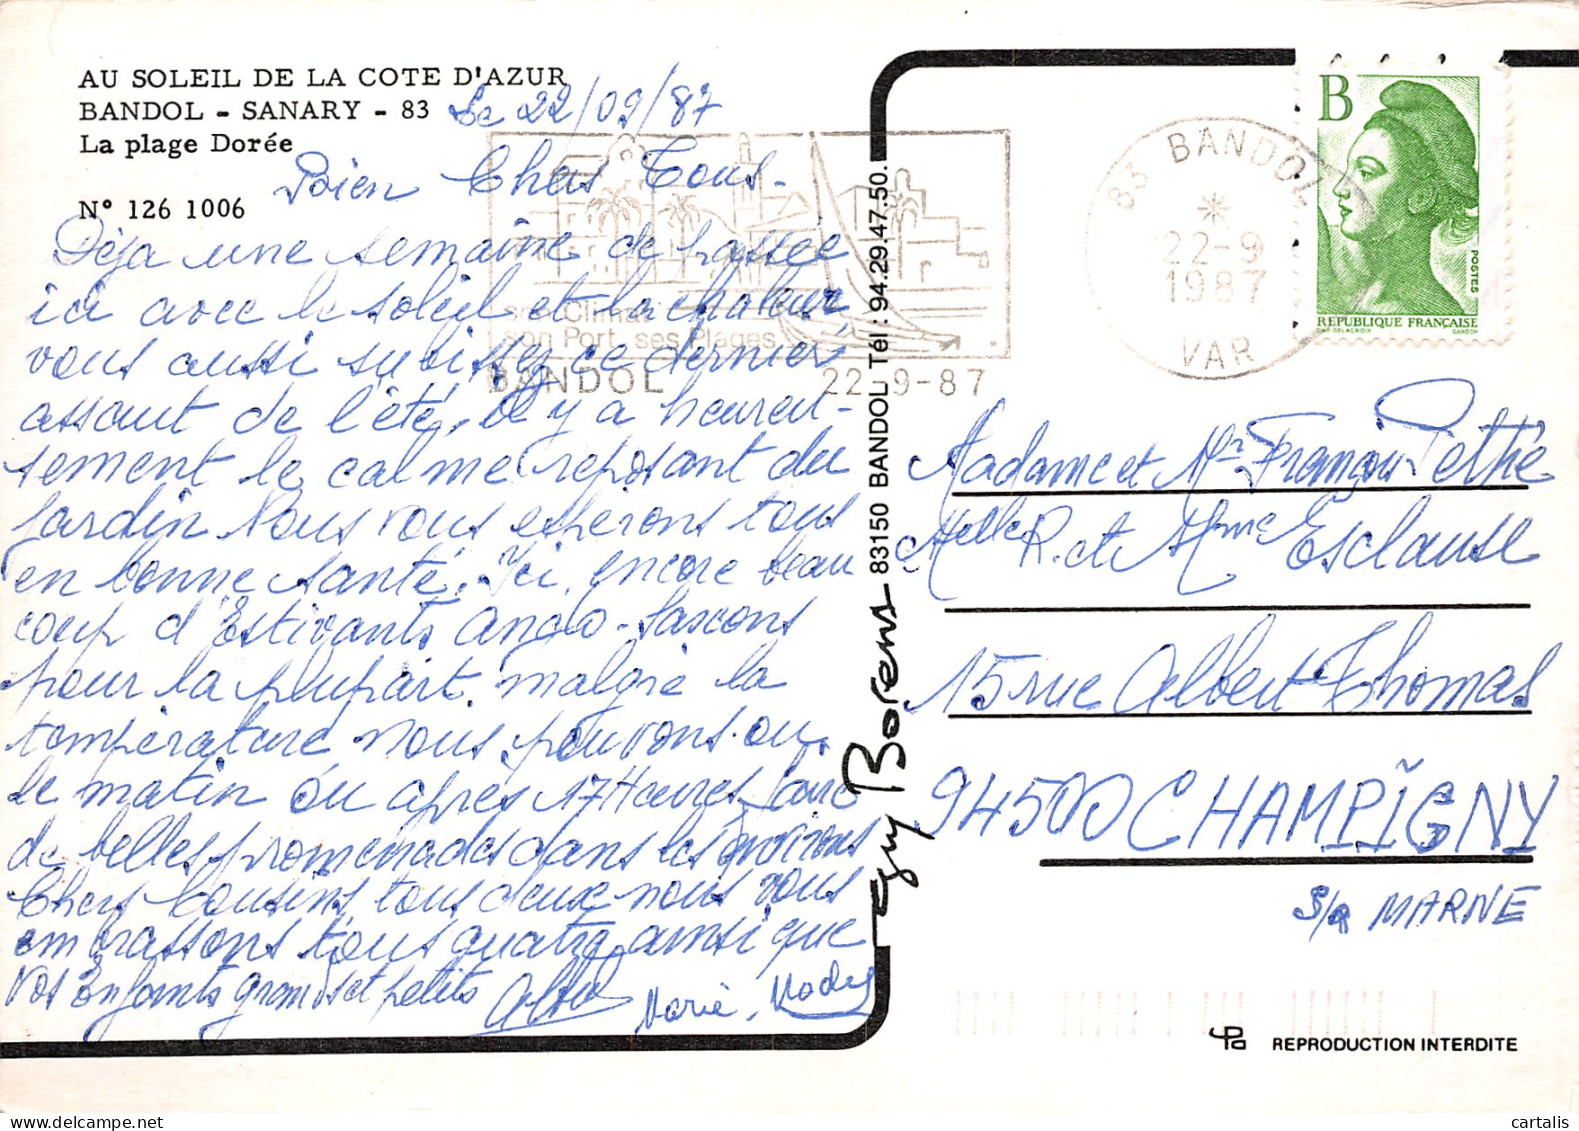 AU SOLEIL DE LA COTE D'AZUR
BANDOL - SANARY - 83
La plage Dorée
N° 126 1006
Le 22/09/87
Bien Chers Tous-
Déja une semaine de passée
ici avec le soleil et la chaleur
vous aussi subissez ce dernier
assaut de l'été, il y a heureu-
sement le calme reposant du
jardin Nous vous esperons tous
en bonne santé. Ici encore beau
coup d'Estivants Anglo-Saxons
pour la plupart. malgré la
température nous pouvons ou
le matin ou après 17 Heures faire
de belles promenades dans les environs
Chers Cousins tous deux nous vous
embrassons tous quatre ainsi que
vos Enfants grands et petits
Marie.
son Climat
son Port, ses Plages
BANDOL
22-9-87
83 BANDOL
22-9
1987
VAR
B
POSTES
REPUBLIQUE FRANÇAISE
D'AP. DELACROIX GANDON
Guy Borens 83150 BANDOL Tél : 94.29.47.50.
Madame et Mr François Pethe
Melle R. et Mme Esclause
15 rue Albert Thomas
94500 CHAMPIGNY
S/ MARNE
REPRODUCTION INTERDITE